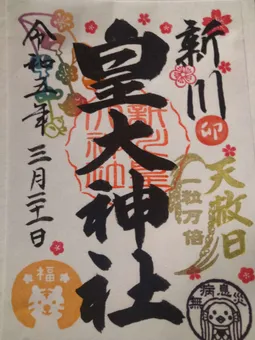 新川
卯
皇大神社
天赦日
一粒万倍
令和五年
三月二十一日
福
無病息災